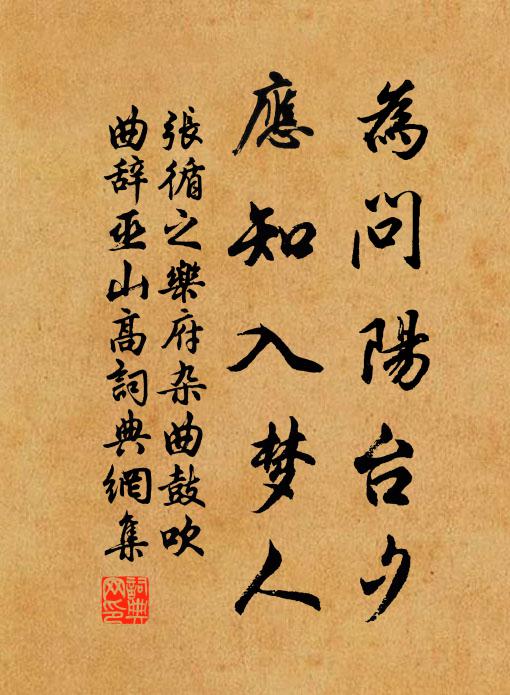 為问陽台夕
應知入梦人
張循之樂府杂曲鼓吹
曲辞巫山高詞典網集
詞典网印